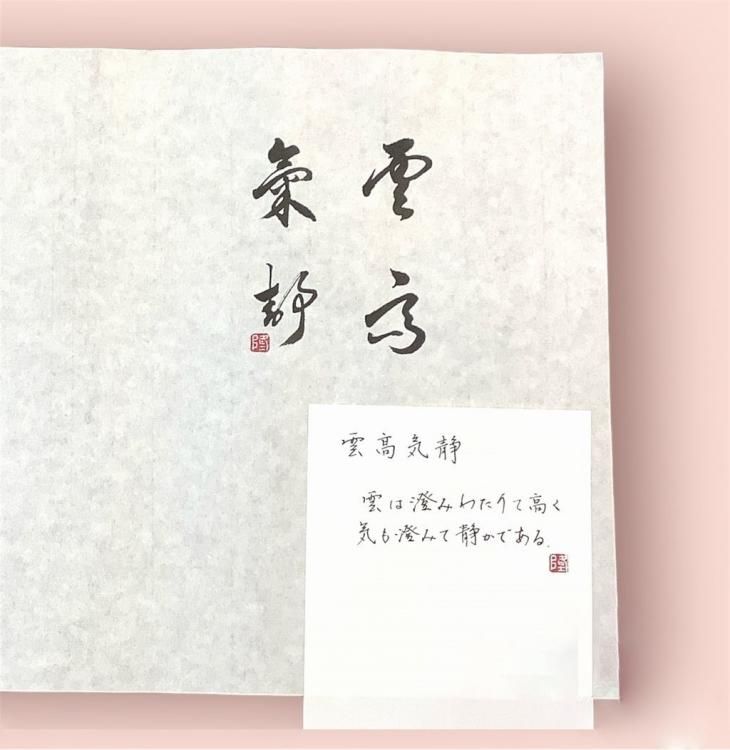 雲高
氣静
雲高気静
雲は澄みわたりて高く
気も澄みて静かである。